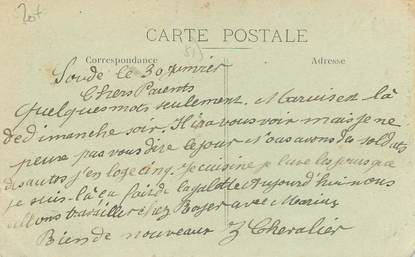 20f
CARTE POSTALE
Correspondance
51)
Adresse
Soudé le 30 Janvier
Chers Parents
Quelques mots seulement. Marius est là
de dimanche soir. Il ira vous voir mais je ne
peux pas vous dire le jour Nous avons des soldats
des autos j'en loge cinq. Je cuisine je lave les
je suis là ça fait de la galette Aujourd'hui nous
allons travailler chez Royer avec Marius
Bien de nouveau Z Chevalier